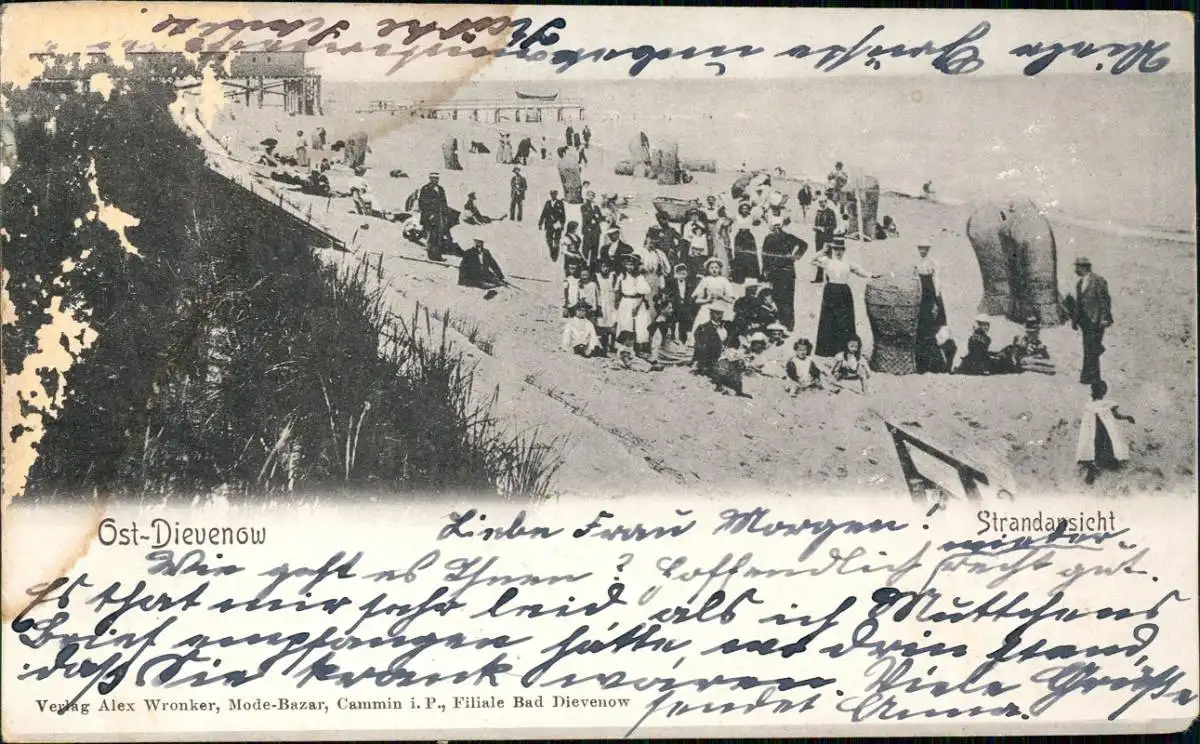 Viele Grüße und
Ost-Dievenow
Strandansicht
Liebe Frau Morgen!
Wie geht es Ihnen? Hoffendlich wieder recht gut.
Es that mir sehr leid als ich Muttchens
Brief empfangen hatte wo drin stand,
daß Sie krank wären. Viele Grüße
sendet Anna.
Verlag Alex Wronker, Mode-Bazar, Cammin i. P., Filiale Bad Dievenow